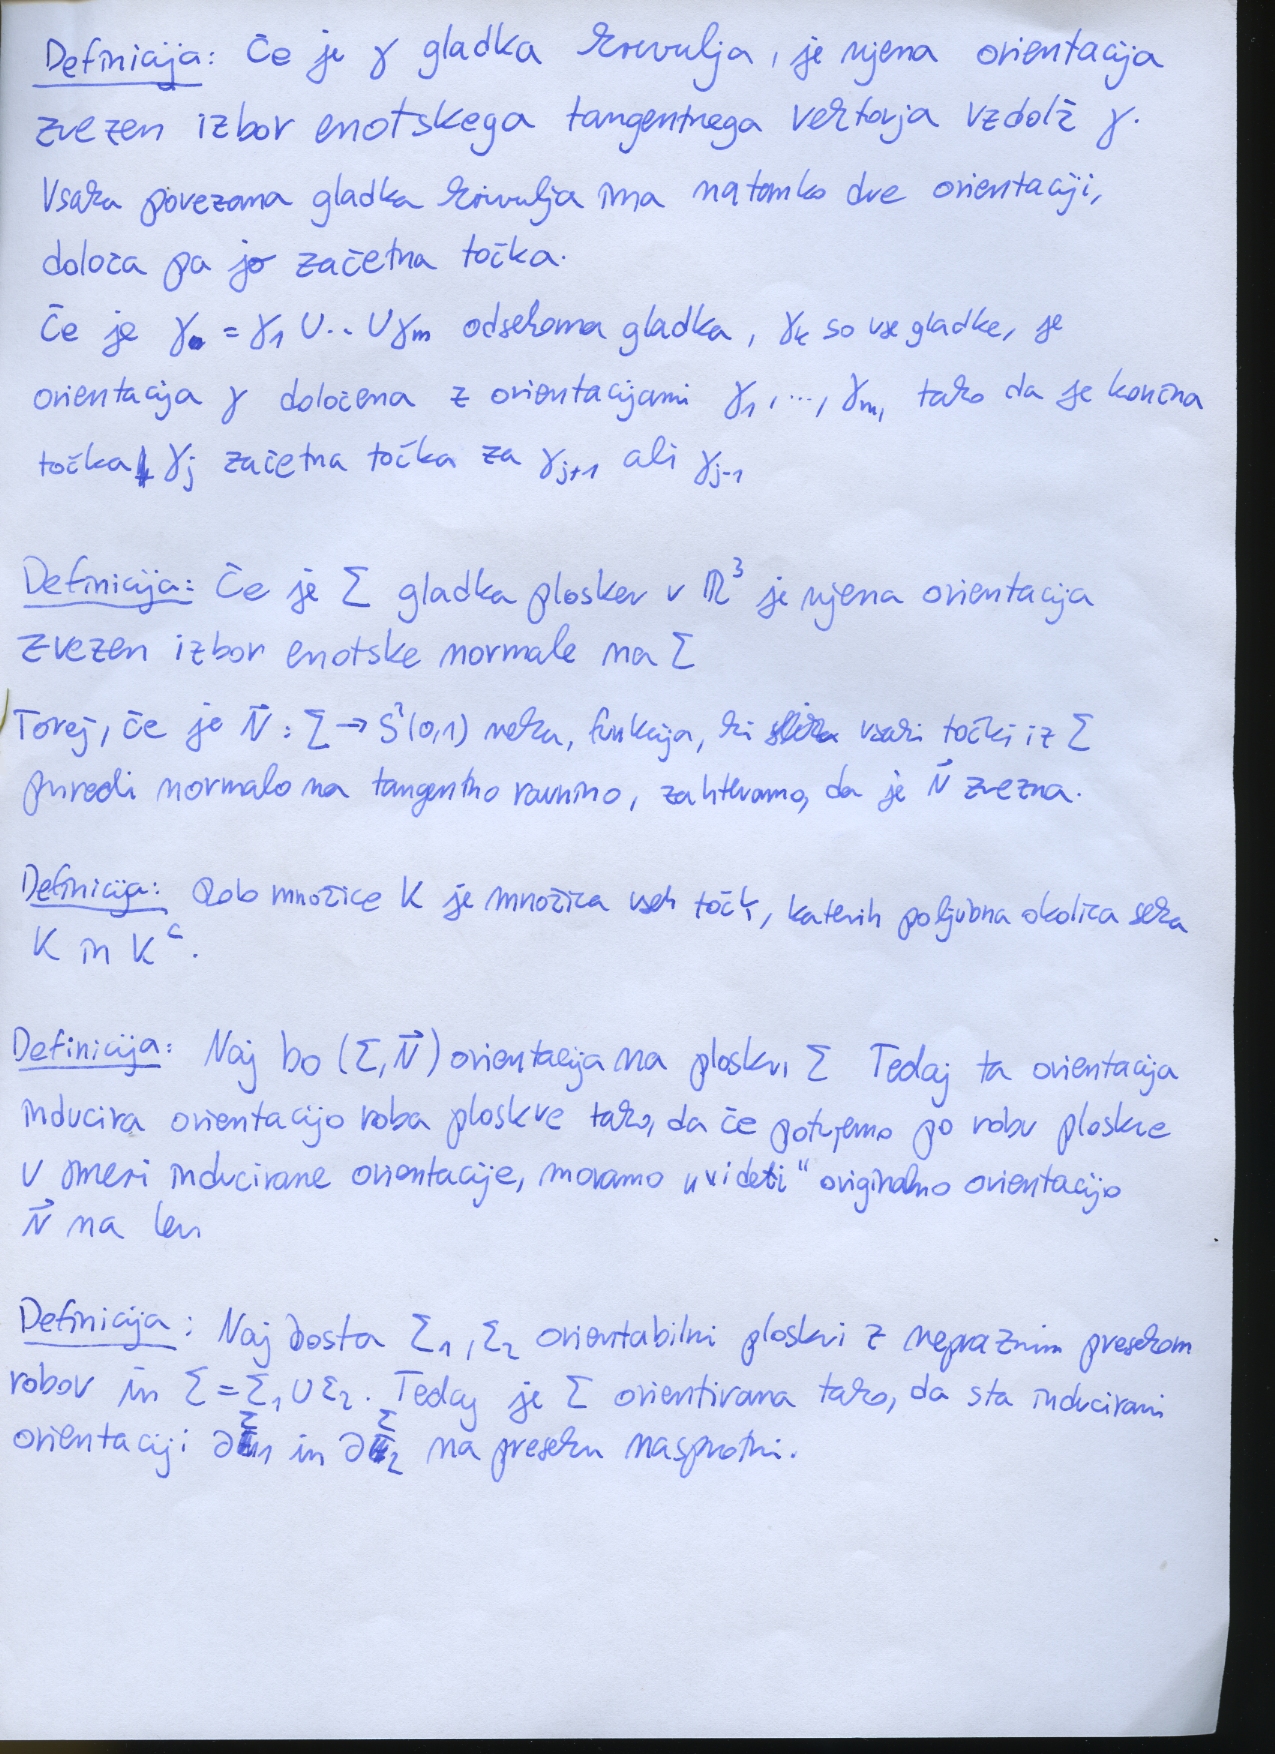 Definicija: Če je γ gladka krivulja, je njena orientacija
zvezen izbor enotskega tangentnega vektorja vzdolž γ.
Vsaka povezana gladka krivulja ima natanko dve orientaciji,
določa pa jo začetna točka.
Če je γ = γ₁ ∪ ... ∪ γₘ odsekoma gladka, γₖ so vse gladke, je
orientacija γ določena z orientacijami γ₁, ..., γₘ, tako da je končna
točka γⱼ začetna točka za γⱼ₊₁ ali γⱼ₋₁
Definicija: Če je Σ gladka ploskev v ℝ³ je njena orientacija
zvezen izbor enotske normale na Σ
Torej, če je N⃗ : Σ → S²(0,1) neka, funkcija, ki vsaki točki iz Σ
priredi normalo na tangentno ravnino, zahtevamo, da je N⃗ zvezna.
Definicija: Rob množice K je množica vseh točk, katerih poljubna okolica seka
K in Kᶜ.
Definicija: Naj bo (Σ, N⃗) orientacija na ploskvi Σ Tedaj ta orientacija
inducira orientacijo roba ploskve tako, da če potujemo po robu ploskve
v smeri inducirane orientacije, moramo "videti" originalno orientacijo
N⃗ na levi
Definicija: Naj bosta Σ₁, Σ₂ orientabilni ploskvi z nepraznim presekom
robov in Σ = Σ₁ ∪ Σ₂. Tedaj je Σ orientirana tako, da sta inducirani
orientaciji ∂Σ₁ in ∂Σ₂ na preseku nasprotni.